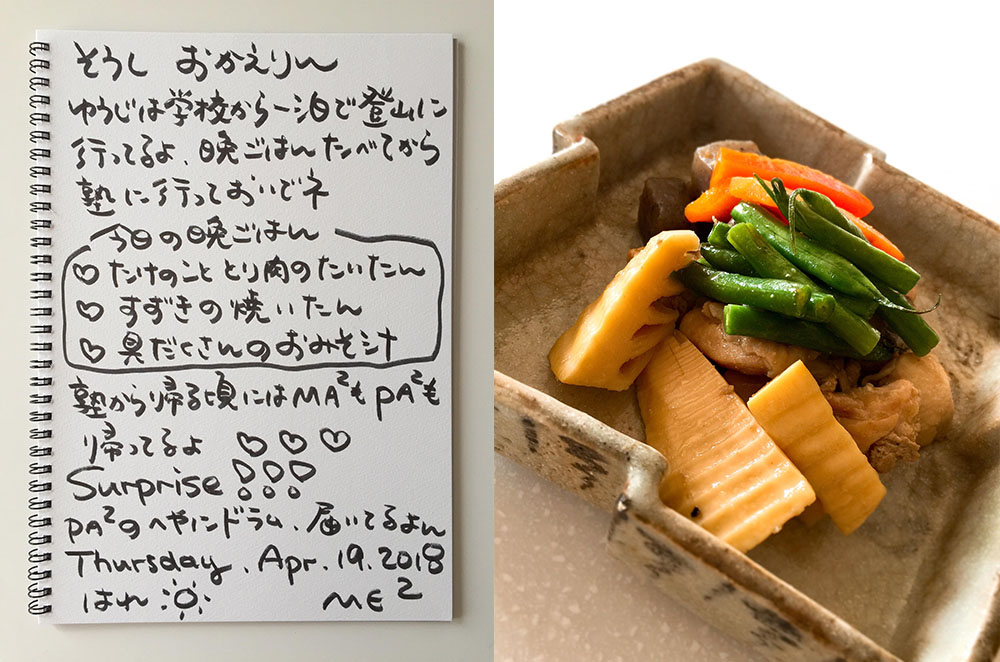 そうし おかえりん
ゆうじは学校から一泊で登山に
行ってるよ、晩ごはんたべてから
塾に行っておいでネ
今日の晩ごはん
♡ たけのこ ととり肉のたいたん
♡ すずきの焼いたん
♡ 具だくさんのおみそ汁
塾から帰る頃にはMA²も PA²も
帰ってるよ ♡ ♡ ♡
Surprise !!!
PA²のへやにドラム、届いてるよん
Thursday, Apr. 19. 2018
はれ ME²